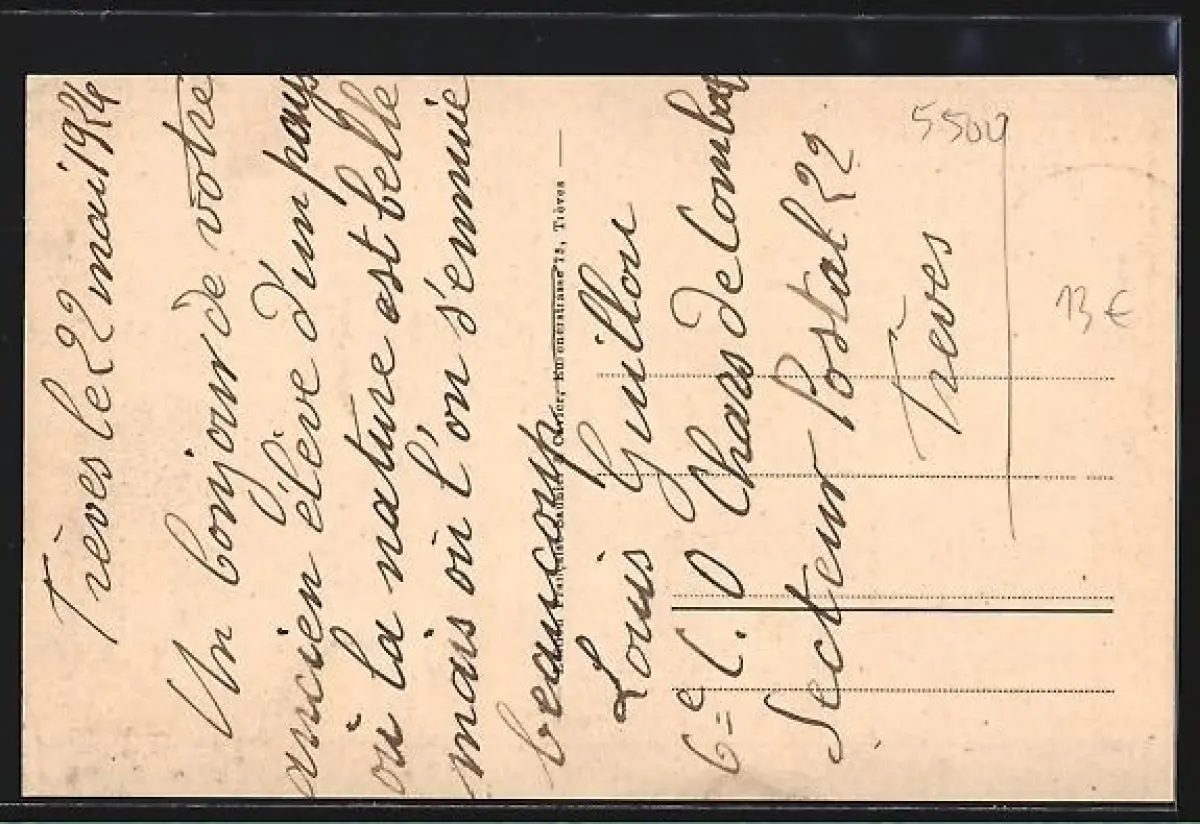 Trèves le 22 mai 1924
Un bonjour de votre
ancien élève d'un pays
où la nature est belle
mais où l'on s'ennuie
beaucoup
Louis Guillou
6=e C. O Chars de Combat
Secteur Postal 22
Trèves
75, Trèves
5500
13 €